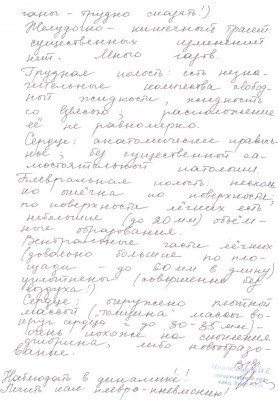 ганы - трудно сказать!)
Желудочно - кишечный тракт:
существенных изменений
нет. Много газов.
Грудная полость: есть незна-
чительные количества свобод-
ной жидкости, жидкость
со взвесью, расположение
её не равномерно.
Сердце: анатомически правиль-
ное, без существенной са-
мостоятельной патологии.
Плевральная полость:
по поверхности лёгких есть
небольшие (до 20 мм) объём-
ные образования.
Вентральные части лёгких
(довольно большие по пло-
щади - до 60 мм в длину)
уплотнены (совершенно без
воздуха!)
Сердце: окружено плотной
массой ("толщина" массы во-
круг сердца - до 30-35 мм) -
очень похоже на скопление
фибрина, либо новообразо-
вание.
Наблюдать в динамике!
Лечить как плевро-пневмонию!